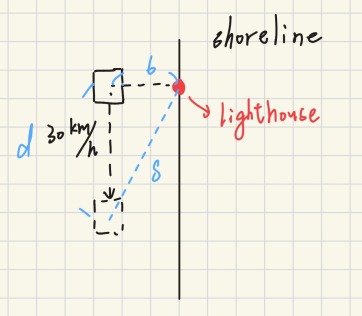 shoreline
6
lighthouse
30 km/h
d
s